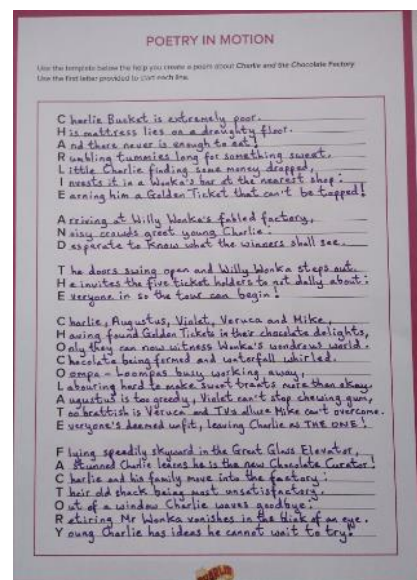 POETRY IN MOTION
Use the template below the help you create a poem about Charlie and the Chocolate Factory
Use the first letter provided to start each line.
Charlie Bucket is extremely poor.
His mattress lies on a draughty floor.
And there never is enough to eat!
Rumbling tummies long for something sweet.
Little Charlie finding some money dropped,
Invests it in a Wonka's bar at the nearest shop:
Earning him a Golden Ticket that can't be topped!
Arriving at Willy Wonka's fabled factory,
Noisy crowds greet young Charlie.
Desperate to know what the winners shall see.
The doors swing open and Willy Wonka steps out.
He invites the five ticket holders to not dally about:
Everyone in so the tour can begin!
Charlie, Augustus, Violet, Veruca and Mike,
Having found Golden Tickets in their chocolate delights,
Only they can now witness Wonka's wondrous world.
Chocolate being formed and waterfall whirled.
Oompa-Loompas busy working away,
Labouring hard to make sweet treats more than okay.
Augustus is too greedy, Violet can't stop chewing gum,
Too brattish is Veruca and TV's allure Mike can't overcome.
Everyone's deemed unfit, leaving Charlie as THE ONE!
Flying speedily skyward in the Great Glass Elevator,
A stunned Charlie learns he is the new Chocolate Curator!
Charlie and his family move into the factory:
Their old shack being most unsatisfactory.
Out of a window Charlie waves goodbye:
Retiring Mr Wonka vanishes in the blink of an eye.
Young Charlie has ideas he cannot wait to try!
CHARLIE